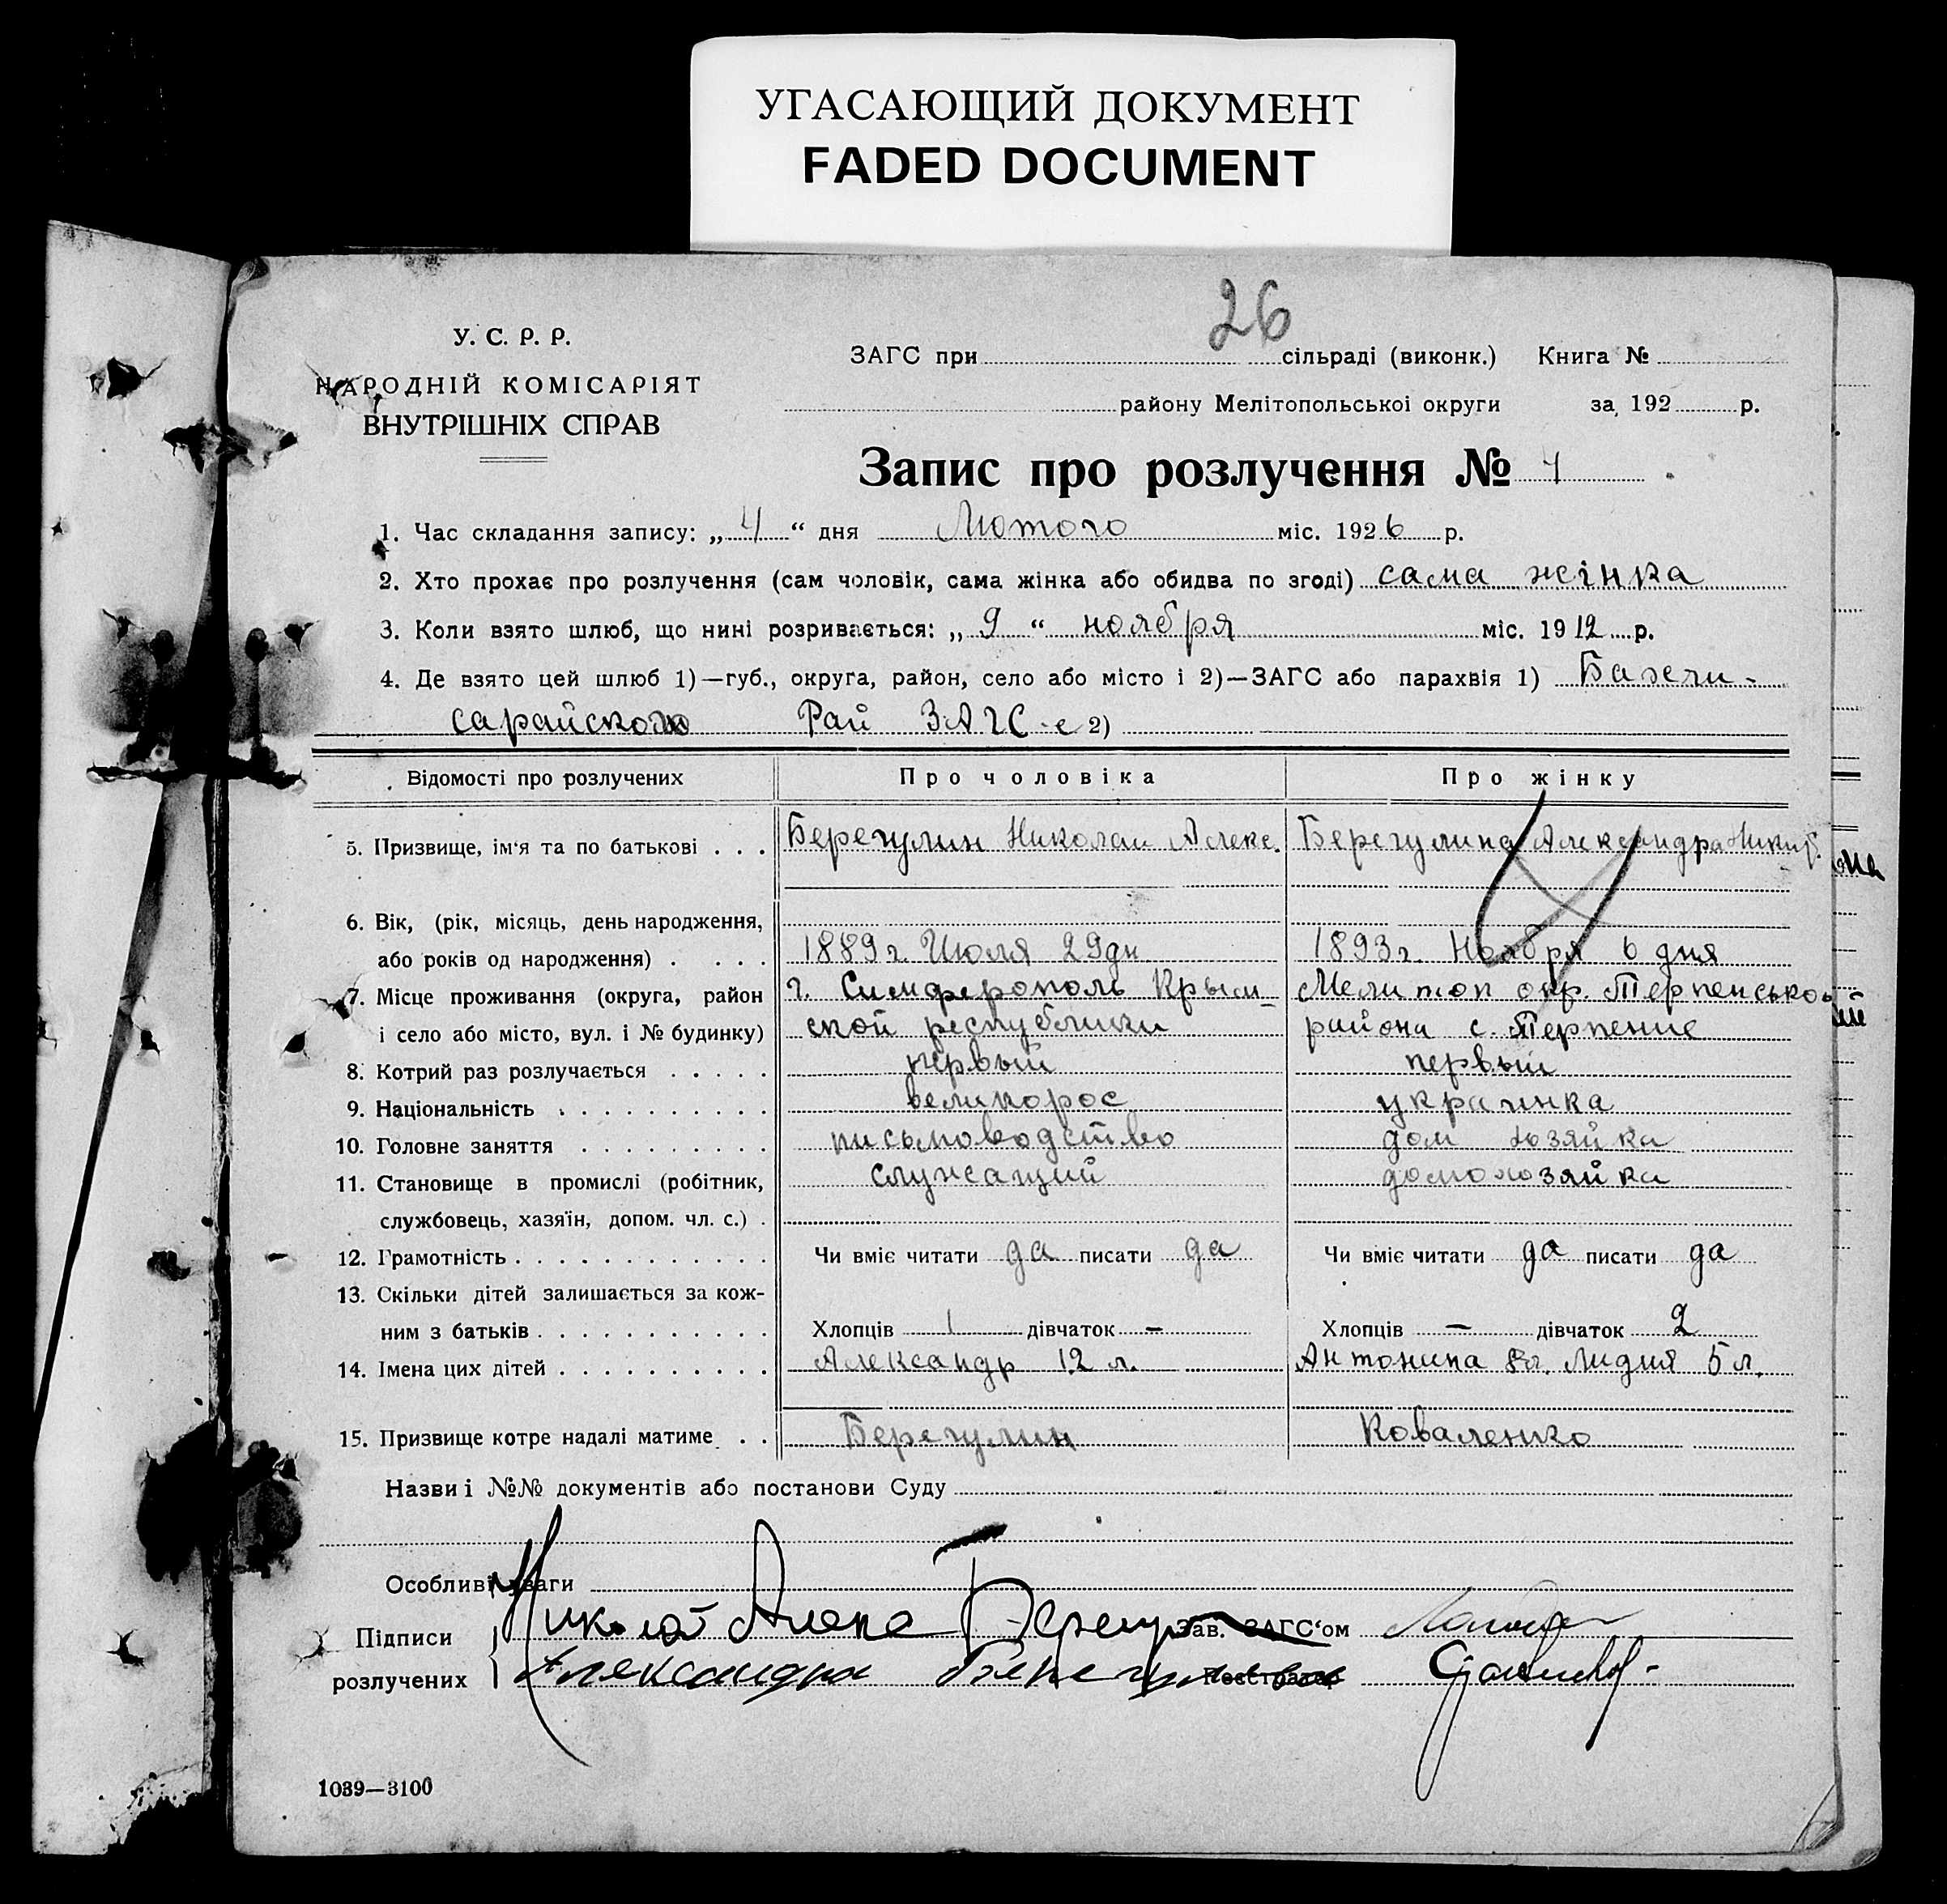 УГАСАЮЩИЙ ДОКУМЕНТ
FADED DOCUMENT
26
У. С. Р. Р.
НАРОДНІЙ КОМІСАРІЯТ
ВНУТРІШНІХ СПРАВ
ЗАГС при сільраді (виконк.) Книга №
району Мелітопольської округи за 192 р.
Запис про розлучення № 4
1. Час складання запису: „ 4 “ дня Лютого міс. 1926 р.
2. Хто прохає про розлучення (сам чоловік, сама жінка або обидва по згоді) сама жінка
3. Коли взято шлюб, що нині розривається: „ 9 “ ноября міс. 1912 р.
4. Де взято цей шлюб 1)—губ., округа, район, село або місто і 2)—ЗАГС або парахвія 1)
сарайского Рай ЗАГС-е 2)
Відомості про розлучених Про чоловіка Про жінку
5. Призвище, ім‘я та по батькові . . . Берегулин Николай Алекс. Берегулина Александра Никиф.
6. Вік, (рік, місяць, день народження,
або років од народження) . . . . 1889 г. Июля 29 дн 1893 г. Ноября 6 дня
7. Місце проживання (округа, район г. Симферополь Крым- Мелитоп окр. Терпенсько
і село або місто, вул. і № будинку) ской республики района с. Терпение
8. Котрий раз розлучається . . . . . первый первый
9. Національність . . . . . . . . . . великорос украинка
10. Головне заняття . . . . . . . . . письмоводство дом хозяйка
11. Становище в промислі (робітник, служащий домохозяйка
службовець, хазяїн, допом. чл. с.) .
12. Грамотність . . . . . . . . . . . . Чи вміє читати да писати да Чи вміє читати да писати да
13. Скільки дітей залишається за кож-
ним з батьків . . . . . . . . . . . Хлопців 1 дівчаток — Хлопців — дівчаток 2
14. Імена цих дітей . . . . . . . . . . Александр 12 л. Антонина 8 л. Лидия 5 л.
15. Призвище котре надалі матиме . . Берегулин Коваленко
Назви і №№ документів або постанови Суду
Особливі уваги
Підписи Николай Алекс Берегул Зав. ЗАГС‘ом
розлучених Александра Берегулина Реєстратор
1039—3100